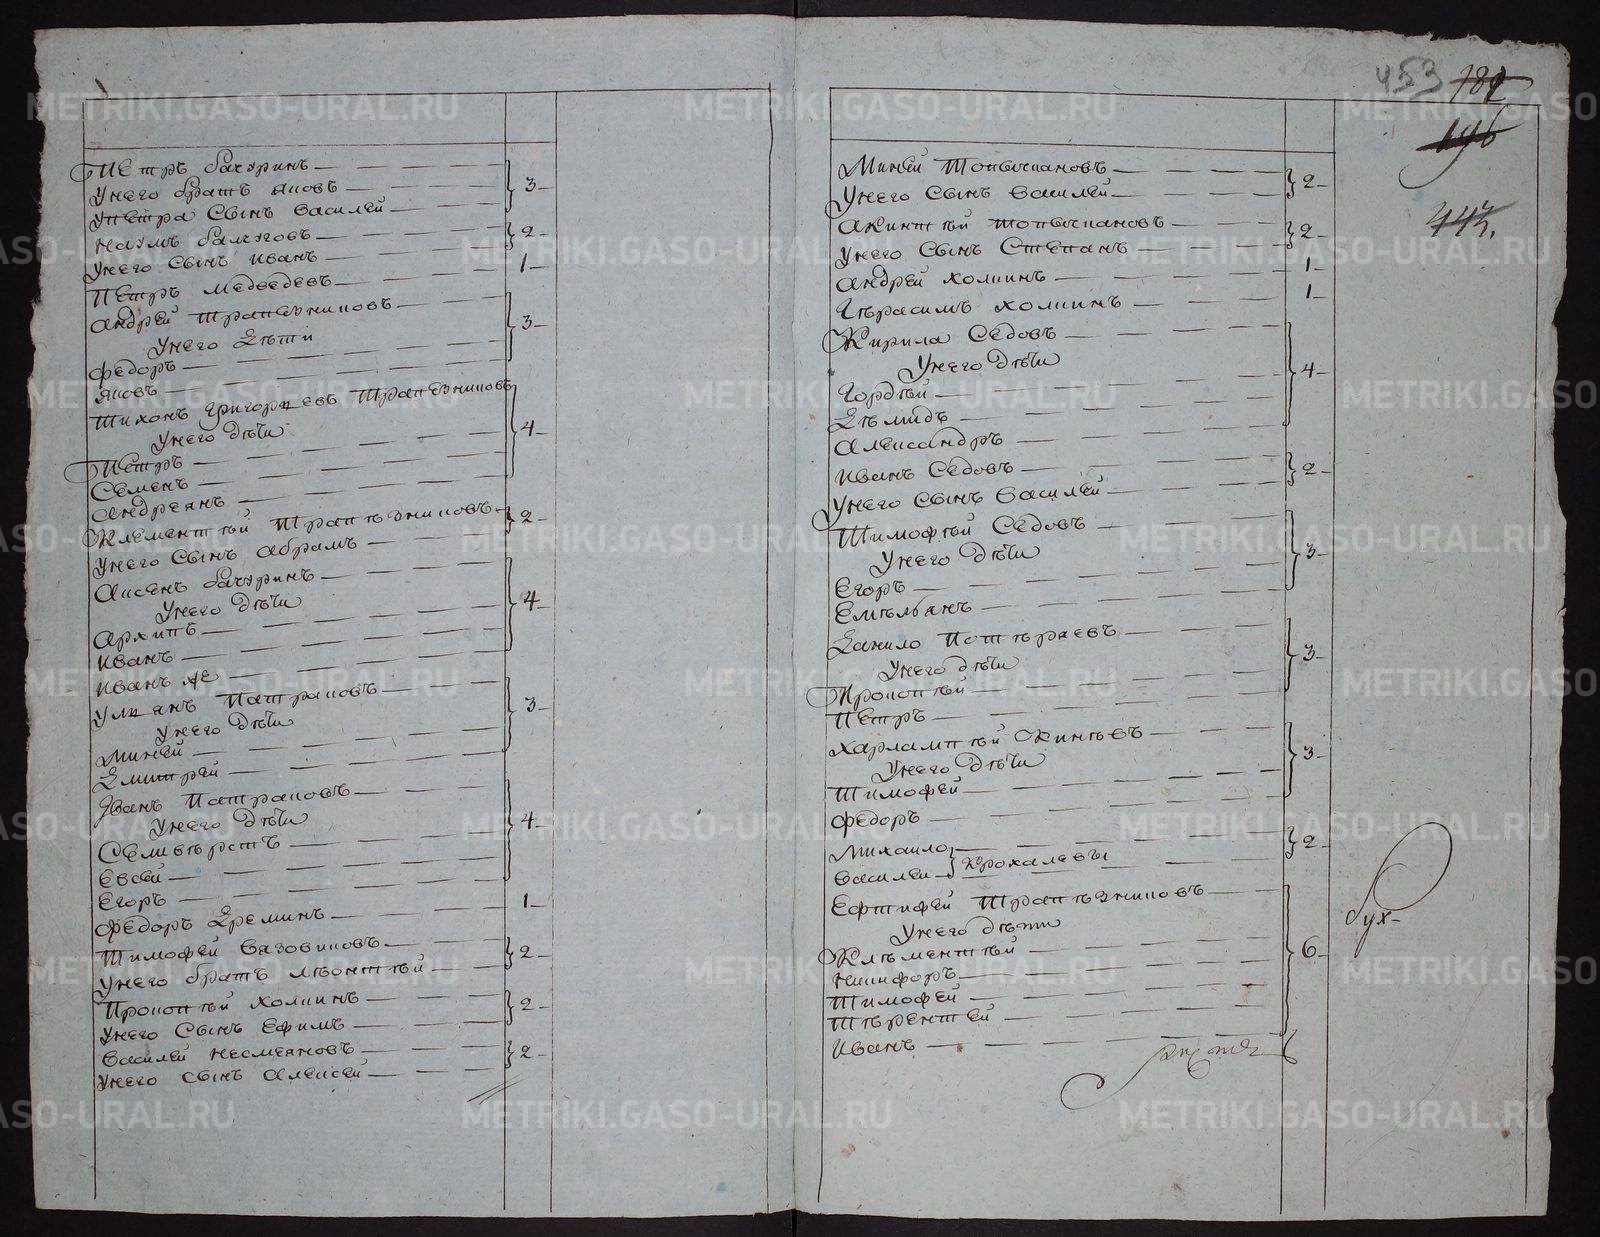 Петръ бачуринъ 3
Унего братъ яковъ
Упетра Сынъ василей
наумъ балчуговъ 2
Унего Сынъ иванъ
Петръ медведевъ 1
андрей трапезниковъ 3
Унего дѣти
федоръ
яковъ
тихонъ григорьевъ трапезниковъ 4
Унего дѣти
Петръ
Семенъ
андреянъ
Клементѣй трапѣзниковъ 2
унего Сынъ абрамъ
аксенъ бачуринъ 4
Унего дѣти
архипъ
иванъ
иванъ же
Патраковъ 3
унего дѣти
миней
дмитрей
Иванъ Патраковъ 4
Унего дѣти
Селивѣрстъ
Евсей
Егоръ
федоръ Еремин 1
тимофей ваговиковъ 2
унего братъ лѣонтѣй
Прокопѣй холкинъ 2
унего Сынъ Ефимъ
василей несмеяновъ 2
унего сынъ алексей
453
182
443.
миней Толысмановъ 2
Унего Сынъ василей
2
унего Сынъ Степанъ
андрей холкинъ 1
Гѣрасимъ холкинъ 1
Кирила Седовъ 4
Унего дѣти
Гордѣй
Дѣмидъ
александръ
иванъ Седовъ 2
Унего Сынъ василей
тимофѣй Седовъ 3
Унего дѣти
Егоръ
Емѣльянъ
Данило 3
Унего дѣти
Прокопѣй
Петръ
харлампѣй 3
Унего дѣти
тимофей
федоръ
михаило 2
василей Крохалевы
Ефтифей трапѣзниковъ 6
Унего дѣти
Клѣментѣй
никифоръ
тимофей
тѣрентей
иванъ
METRIKI.GASO-URAL.RU